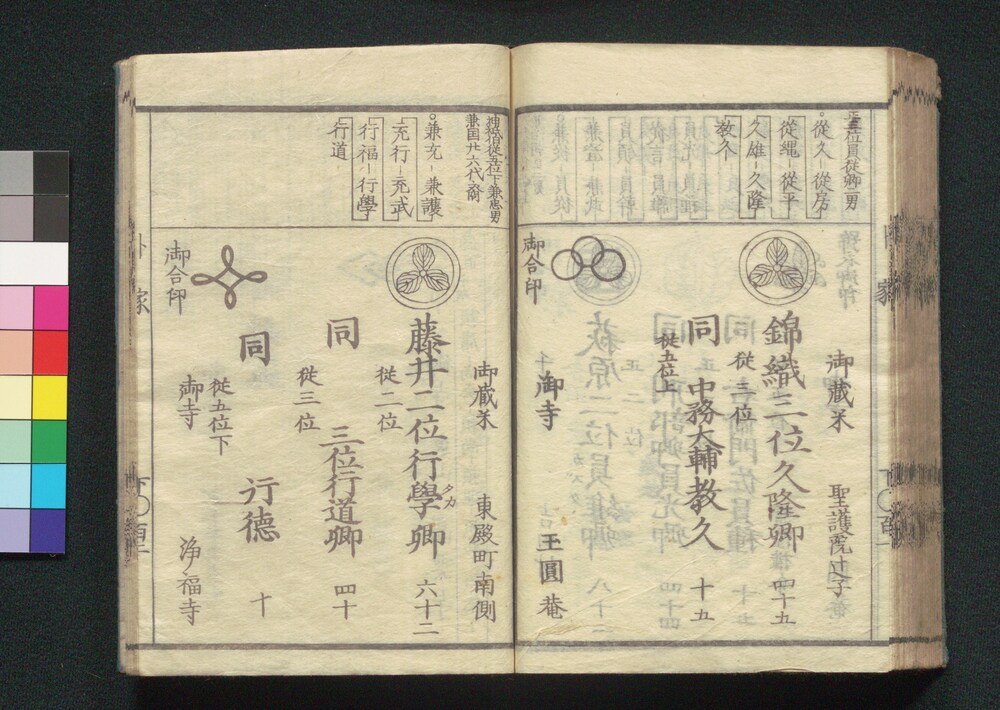 從久─從房
從縄─從平
久雄─久隆
教久
御蔵米
聖護院辻子
錦織三位久隆卿
四十五
從三位
同
中務大輔教久
十五
從五位上
御合印
御寺
玉圓菴
兼国廿六代裔
兼充─兼護
充行─充武
行福─行學
行道
御蔵米
東殿町南側
藤井二位行學卿
タカ
六十二
從二位
同
三位行道卿
四十
從三位
同
行德
十
從五位下
御合印
御寺
浄福寺